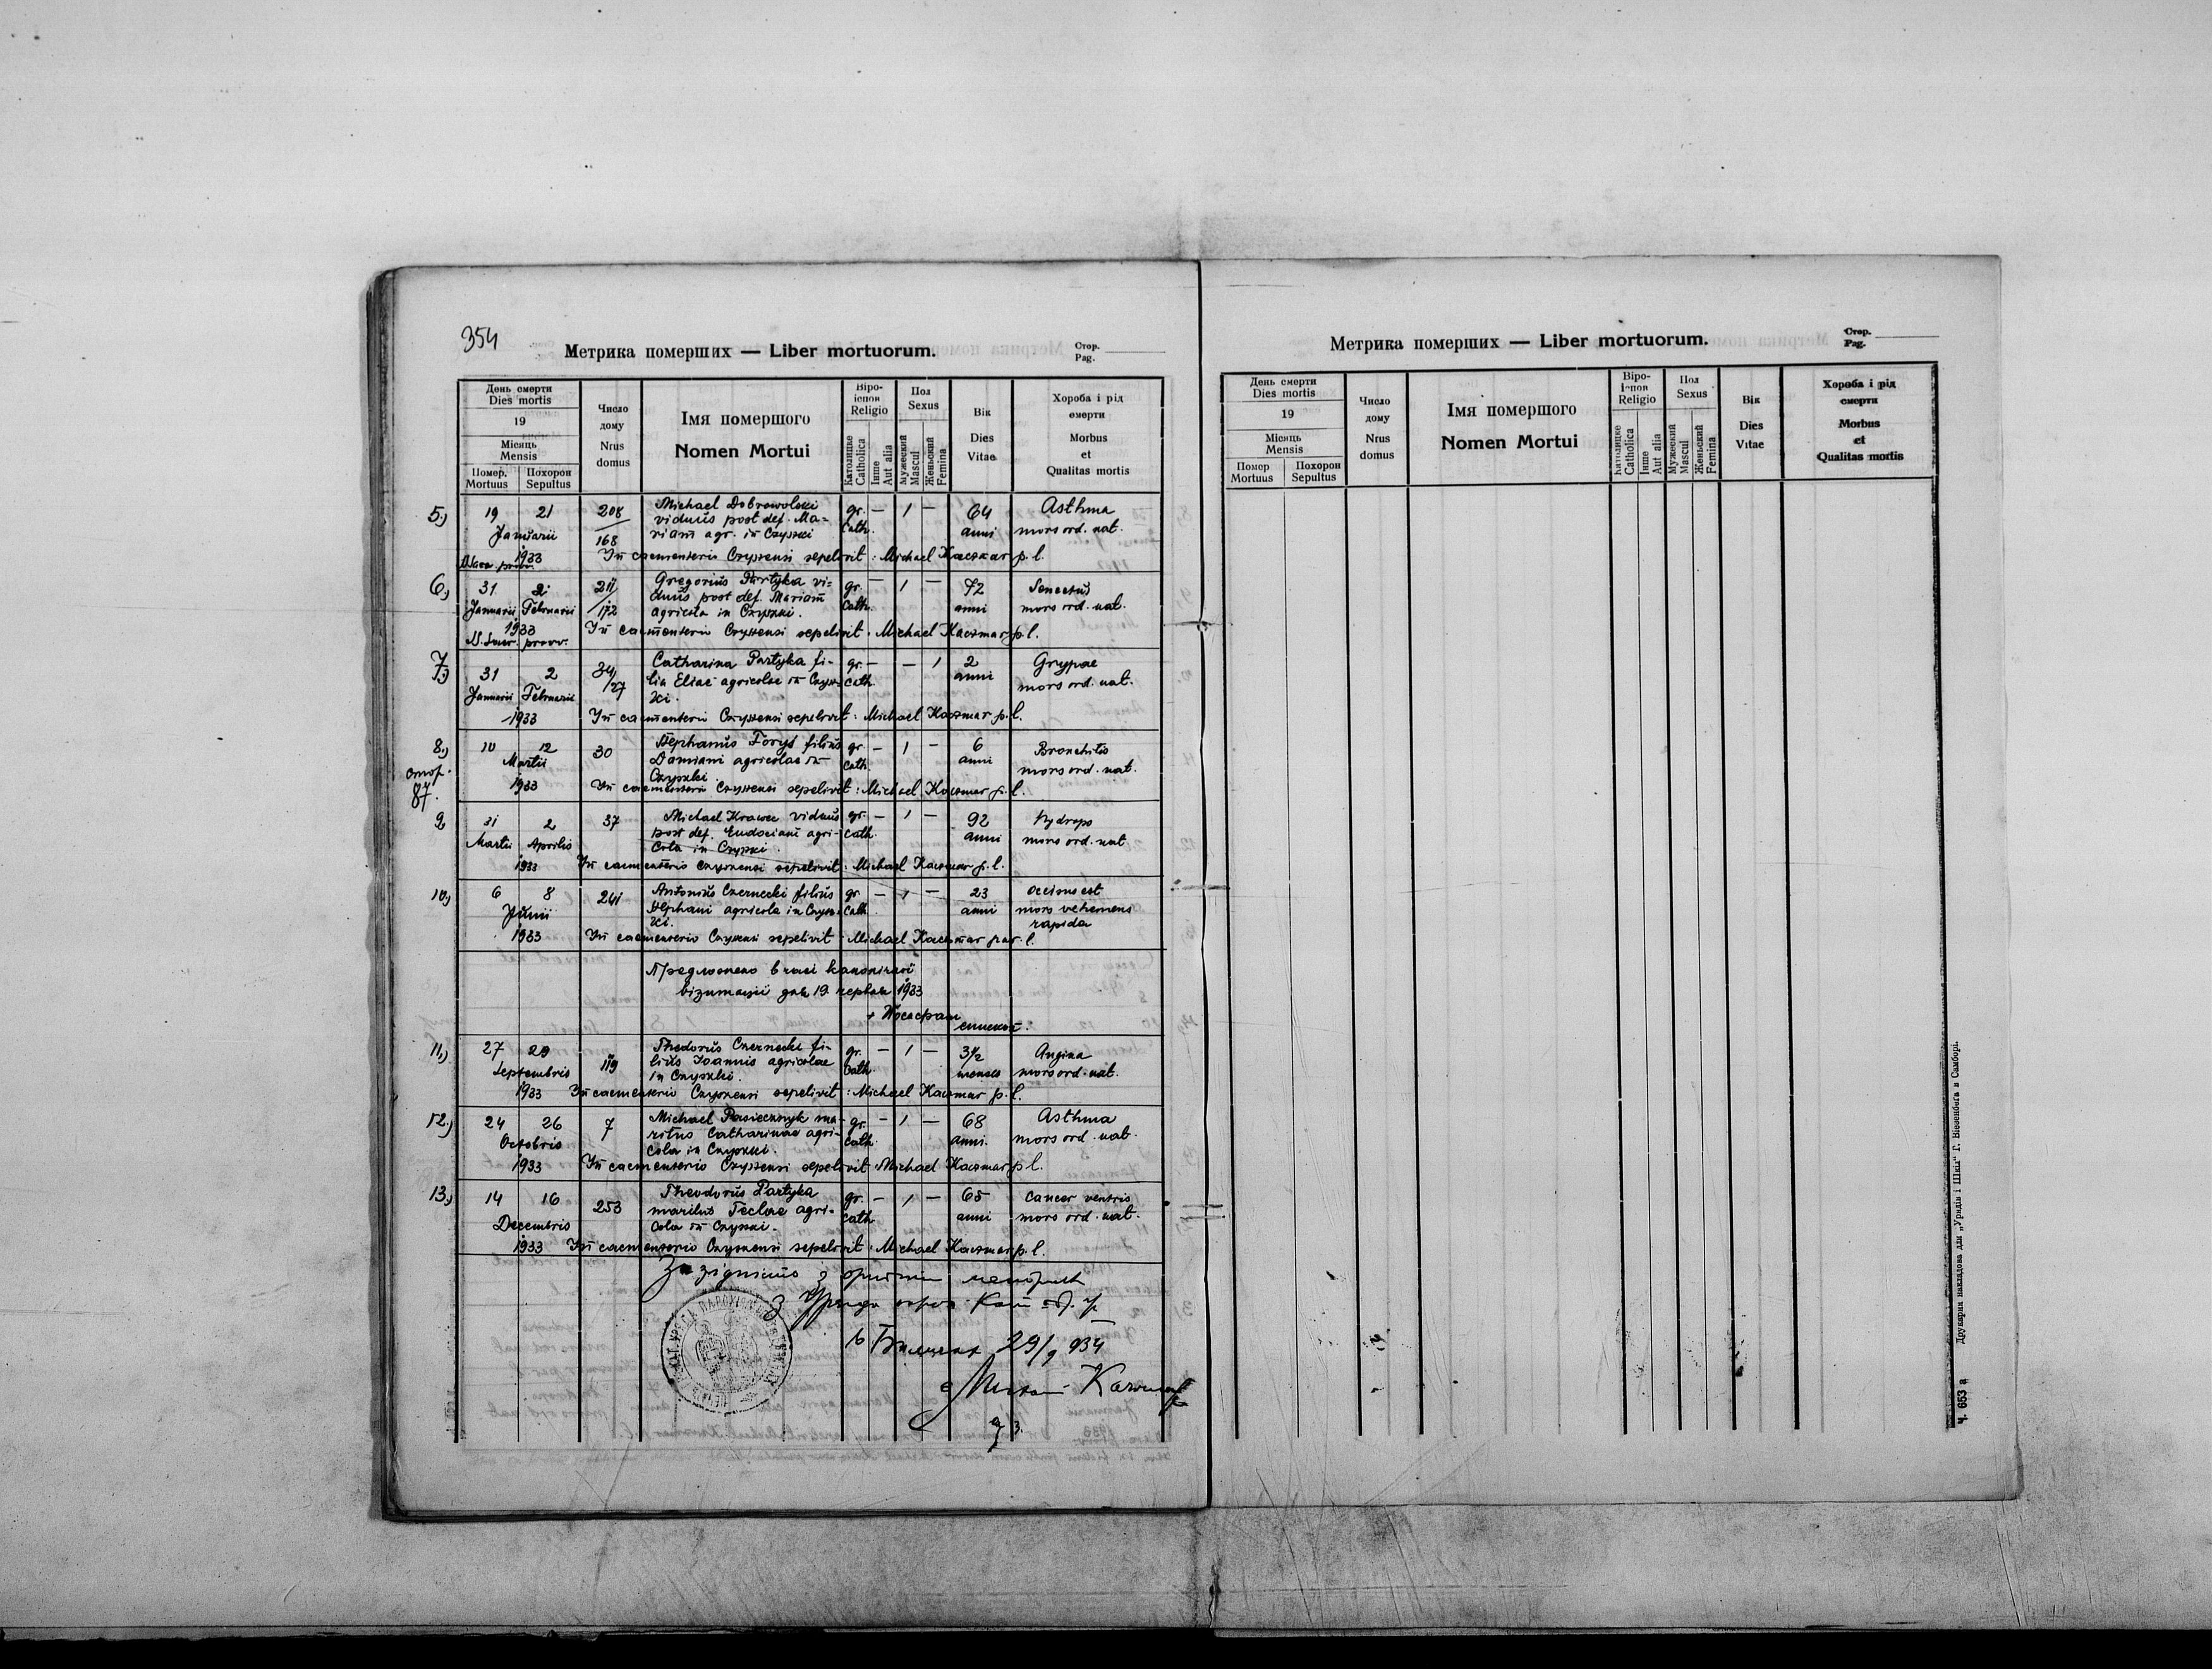 354
Метрика померших — Liber mortuorum.
Стор.
Pag.
День смерти
Dies mortis
19
Місяць
Mensis
Помер.
Mortuus
Похорон
Sepultus
Число
дому
Nrus
domus
Імя помершого
Nomen Mortui
Віро-
іспов
Religio
Католицке
Catholica
Інше
Aut alia
Пол
Sexus
Мужеский
Mascul
Женьский
Femina
Вік
Dies
Vitae
Хороба і рід
смерти
Morbus
et
Qualitas mortis
5.) 19 21 208 Michael Dobrowolski gr. — 1 — 64 Asthma
viduus post def. Ma- cath. anni mors ord. nat.
Januarii 168 riam agr. in Czyszki
1933 In caementerio Czyszensi sepelivit: Michael Kaczmar p. l.
6.) 31 2 211 Gregorius Partyka vi- gr. — 1 — 72 Senectus
Januarii Februarii /172 duus post def. Mariam cath. anni mors ord. nat.
agricola in Czyszki.
1933 In caementerio Czyszensi sepelivit: Michael Kaczmar p. l.
7.) 31 2 34 Catharina Partyka fi- gr. — — 1 2 Grypae
Januarii Februarii /27 lia Eliae agricolae in Czysz- cath. anni mors ord. nat.
ki.
1933 In caementerio Czyszensi sepelivit: Michael Kaczmar p. l.
8.) 10 12 30 Stephanus Forys filius gr. — 1 — 6 Bronchitis
Martii Damiani agricolae in cath. anni mors ord. nat.
стор. 87. Czyszki
1933 In caementerio Czyszensi sepelivit: Michael Kaczmar p. l.
9 31 2 37 Michael Krawec viduus gr. — 1 — 92 Hydrops
Martii Aprilis post def. Eudociam agri- cath. anni mors ord. nat
cola in Czyszki.
1933 In caementerio Czyszensi sepelivit: Michael Kaczmar p. l.
10.) 6 8 241 Antonius Czernecki filius gr. — 1 — 23 occisus est
Junii Stephani agricola in Czysz- cath. anni mors vehemens
ki. rapida
1933 In caementerio Czyszensi sepelivit: Michael Kaczmar par. l.
Предложено в часі канонічної
візитації дня 19 червня 1933
+ Йосафат
епископ.
11.) 27 29 119 Thedorus Czernecki fi- gr. — 1 — 3½ Angina
Septembris lius Joannis agricolae cath. menses mors ord. nat.
in Czyszki.
1933 In caementerio Czyszensi sepelivit: Michael Kaczmar p. l.
12.) 24 26 7 Michael Pasiecznyk ma- gr. — 1 — 68 Asthma
Octobris ritus Catharinae agri- cath. anni. mors ord. nat.
cola in Czyszki.
1933 In caementerio Czyszensi sepelivit: Michael Kaczmar p. l.
13.) 14 16 253 Theodorus Partyka gr. — 1 — 65 cancer ventris
Decembris maritus Teclae agri- cath. anni mors ord. nat.
cola in Czyszki.
1933 In caementerio Czyszensi sepelivit: Michael Kaczmar p. l.
29/9 934
Метрика померших — Liber mortuorum.
Стор.
Pag.
День смерти
Dies mortis
19
Місяць
Mensis
Помер
Mortuus
Похорон
Sepultus
Число
дому
Nrus
domus
Імя помершого
Nomen Mortui
Віро-
іспов
Religio
Католицке
Catholica
Інше
Aut alia
Пол
Sexus
Мужеский
Mascul
Женьский
Femina
Вік
Dies
Vitae
Хороба і рід
смерти
Morbus
et
Qualitas mortis
Ч. 653 а Друкарня накладова для „Урядів і Шкіл" Г. Візенберґа в Самборі.